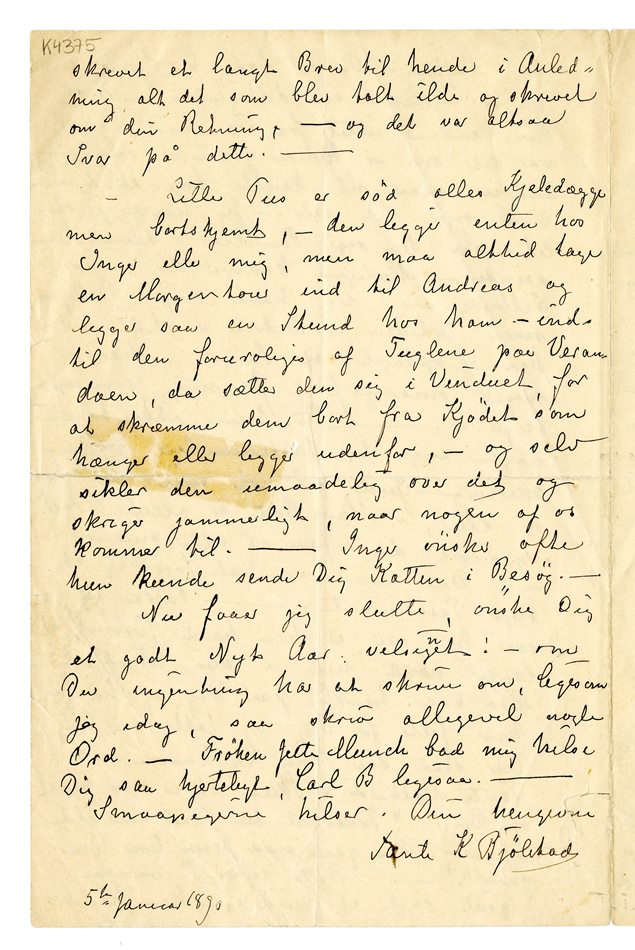 K4375
skrevet et langt Brev til hende i Anled=
ning alt det som blev talt ilde og skrevet
om din Retning, — og det var altsaa
Svar på dette. —
— Lille Pus er sød alles Kjæledægge
men bortskjemt, — den legger enten hos
Inger elle mig, men maa alttid tage
en Morgentour ind til Andreas og
legger saa en Stund hos ham — ind=
til den foruroliges af Fuglene paa Veran=
daen, da sætter den sig i Vinduet, for
at skræmme dem bort fra Kjödet som
hænger eller legger udenfor, — og selv
sikler den umaadelig over det og
skriger jammerligt, naar nogen af os
kommer til. — Inger önsker ofte
hun kunde sende Dig Katten i Besög. —
Nu faar jeg slutte, önske Dig
et godt Nyt Aar. velsignet! — om
Du ingenting har at skrive om, legesom
jeg idag, saa skriv allegevel nogle
Ord. — Fröken Jette Munch bad mig hilse
Dig saa hjerteligt, Carl B legesaa. —
Smaapigerne hilser. Din hengivne
Tante K Bjölstad
5te Januar 1890